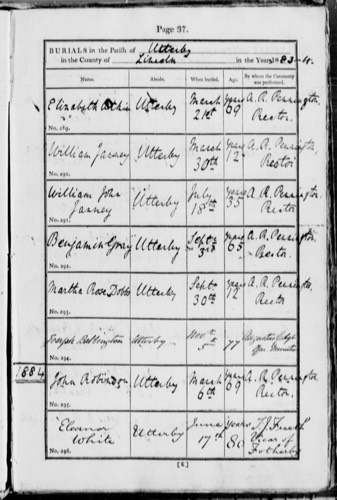 Page 37.
BURIALS in the Parish of Utterby
in the County of Lincoln in the Years 1883-4.
Name. Abode. When buried. Age. By whom the Ceremony was performed.
Elizabeth Utterby March 21st years 69 A. R. Pennington, Rector.
No. 289.
William Janney Utterby March 30th years 12 A. R. Pennington, Rector
No. 290.
William John Janney Utterby July 18th years 35 A. R. Pennington, Rector
No. 291.
Benjamin Gray Utterby Septr 3rd years 65 A. R. Pennington, Rector.
No. 292.
Martha Rose Dobbs Utterby Septr 30th years 12 A. R. Pennington, Rector
No. 293.
Joseph Utterby Novr 5th 77
No. 294.
1884
John Robinson Utterby March 6th years 69 A. R. Pennington, Rector.
No. 295.
Eleanor White Utterby June 17th years 80 Vicar of Fotherby
No. 296.
[G]